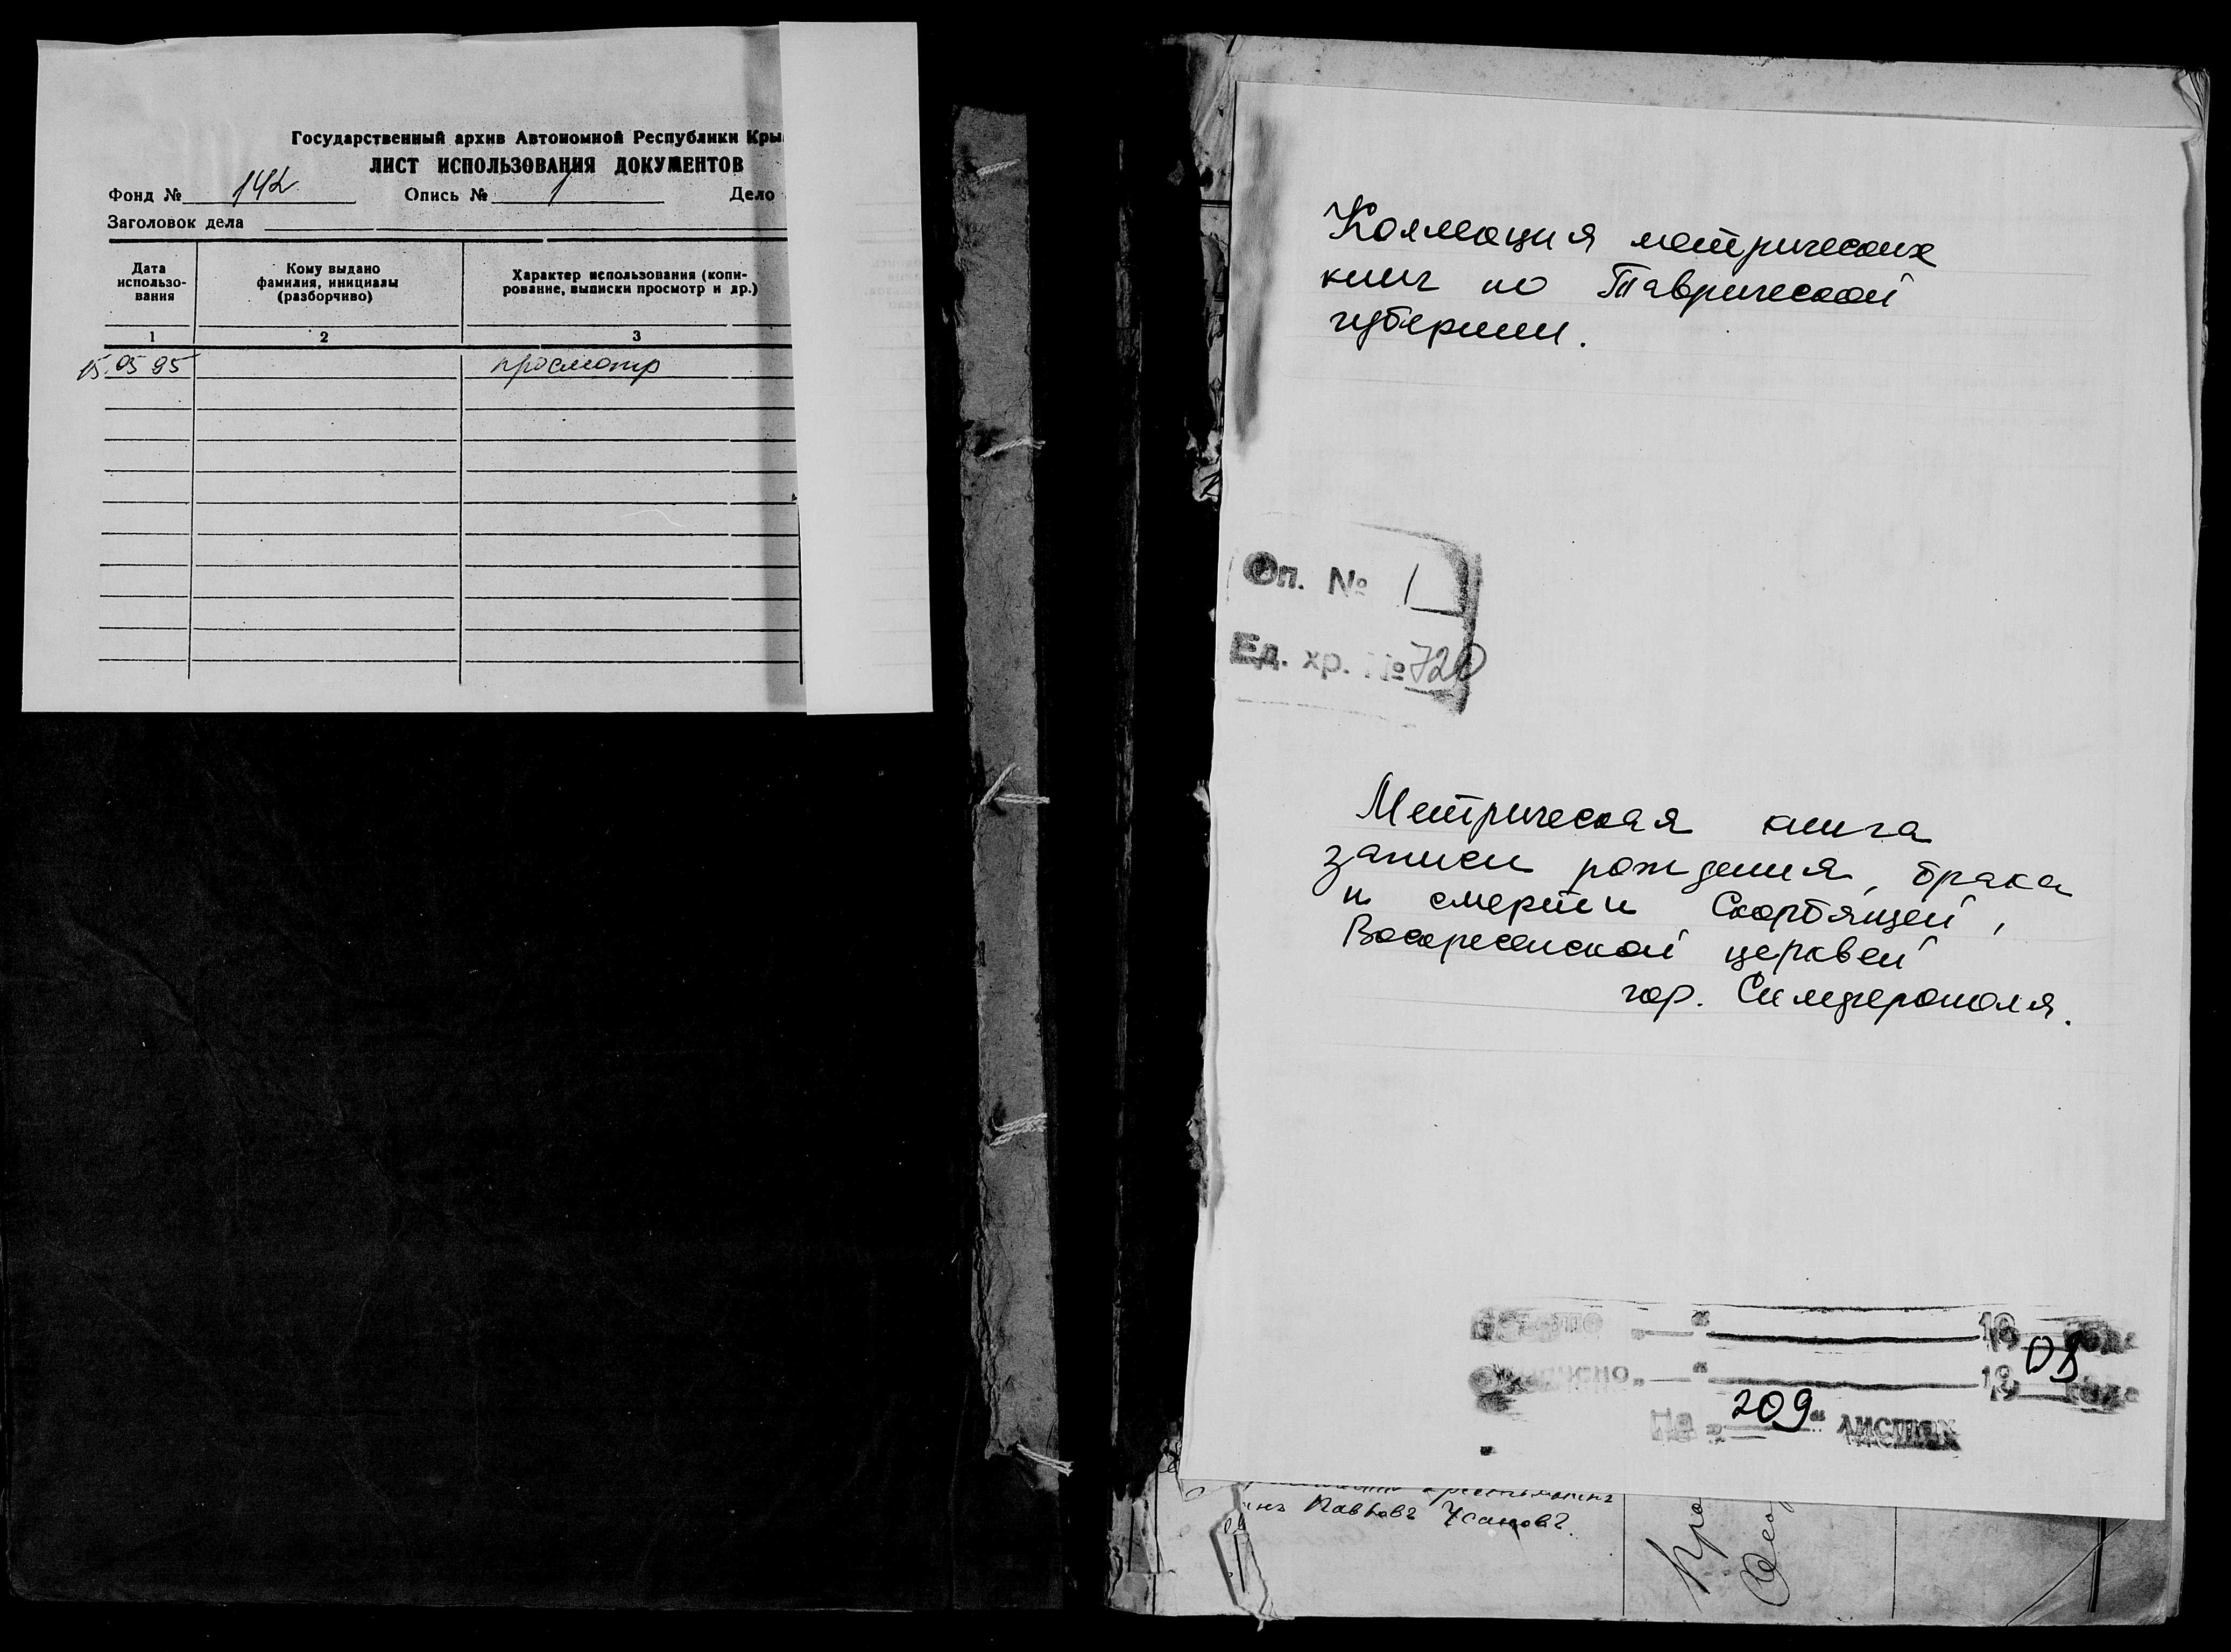 Государственный архив Автономной Республики Кры
ЛИСТ ИСПОЛЬЗОВАНИЯ ДОКУМЕНТОВ
Фонд № 142 Опись № 1 Дело
Заголовок дела
Дата использо-вания
Кому выдано фамилия, инициалы (разборчиво)
Характер использования (копи-рование, выписки просмотр и др.)
1 2 3
15.05 95 просмотр
Коллекция метрических
книг по Таврической
губернии.
Оп. № 1
Ед. хр. № 720
Метрическая книга
записи рождения, брака
и смерти Скорбящей,
Воскресенской церквей
гор. Симферополя.
19 года
19 года
На „209" листах
Павловъ Усановъ.